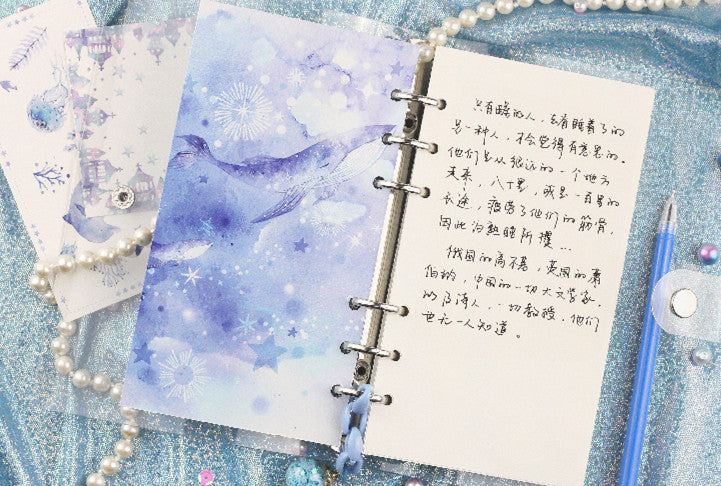 只有醒的人，去看睡着了的
另一种人，才会觉得有意思的。
他们是从很远的一个地方
走来，八十里，或是一百里的
长途，疲劳了他们的筋骨，
因此为熟睡所攫…
俄国的高不基，英国的萧
伯纳，中国的一切大文学家，
的诗人，一切教授，他们
也无一人知道。